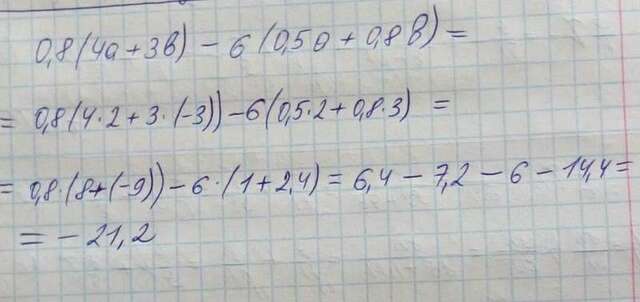 0,8(4а+3в) – 6(0,5а+0,8в) =
= 0,8(4·2+3·(-3)) – 6(0,5·2+0,8·3) =
= 0,8·(8+(-9)) – 6·(1+2,4) = 6,4 – 7,2 – 6 – 14,4 =
= – 21,2